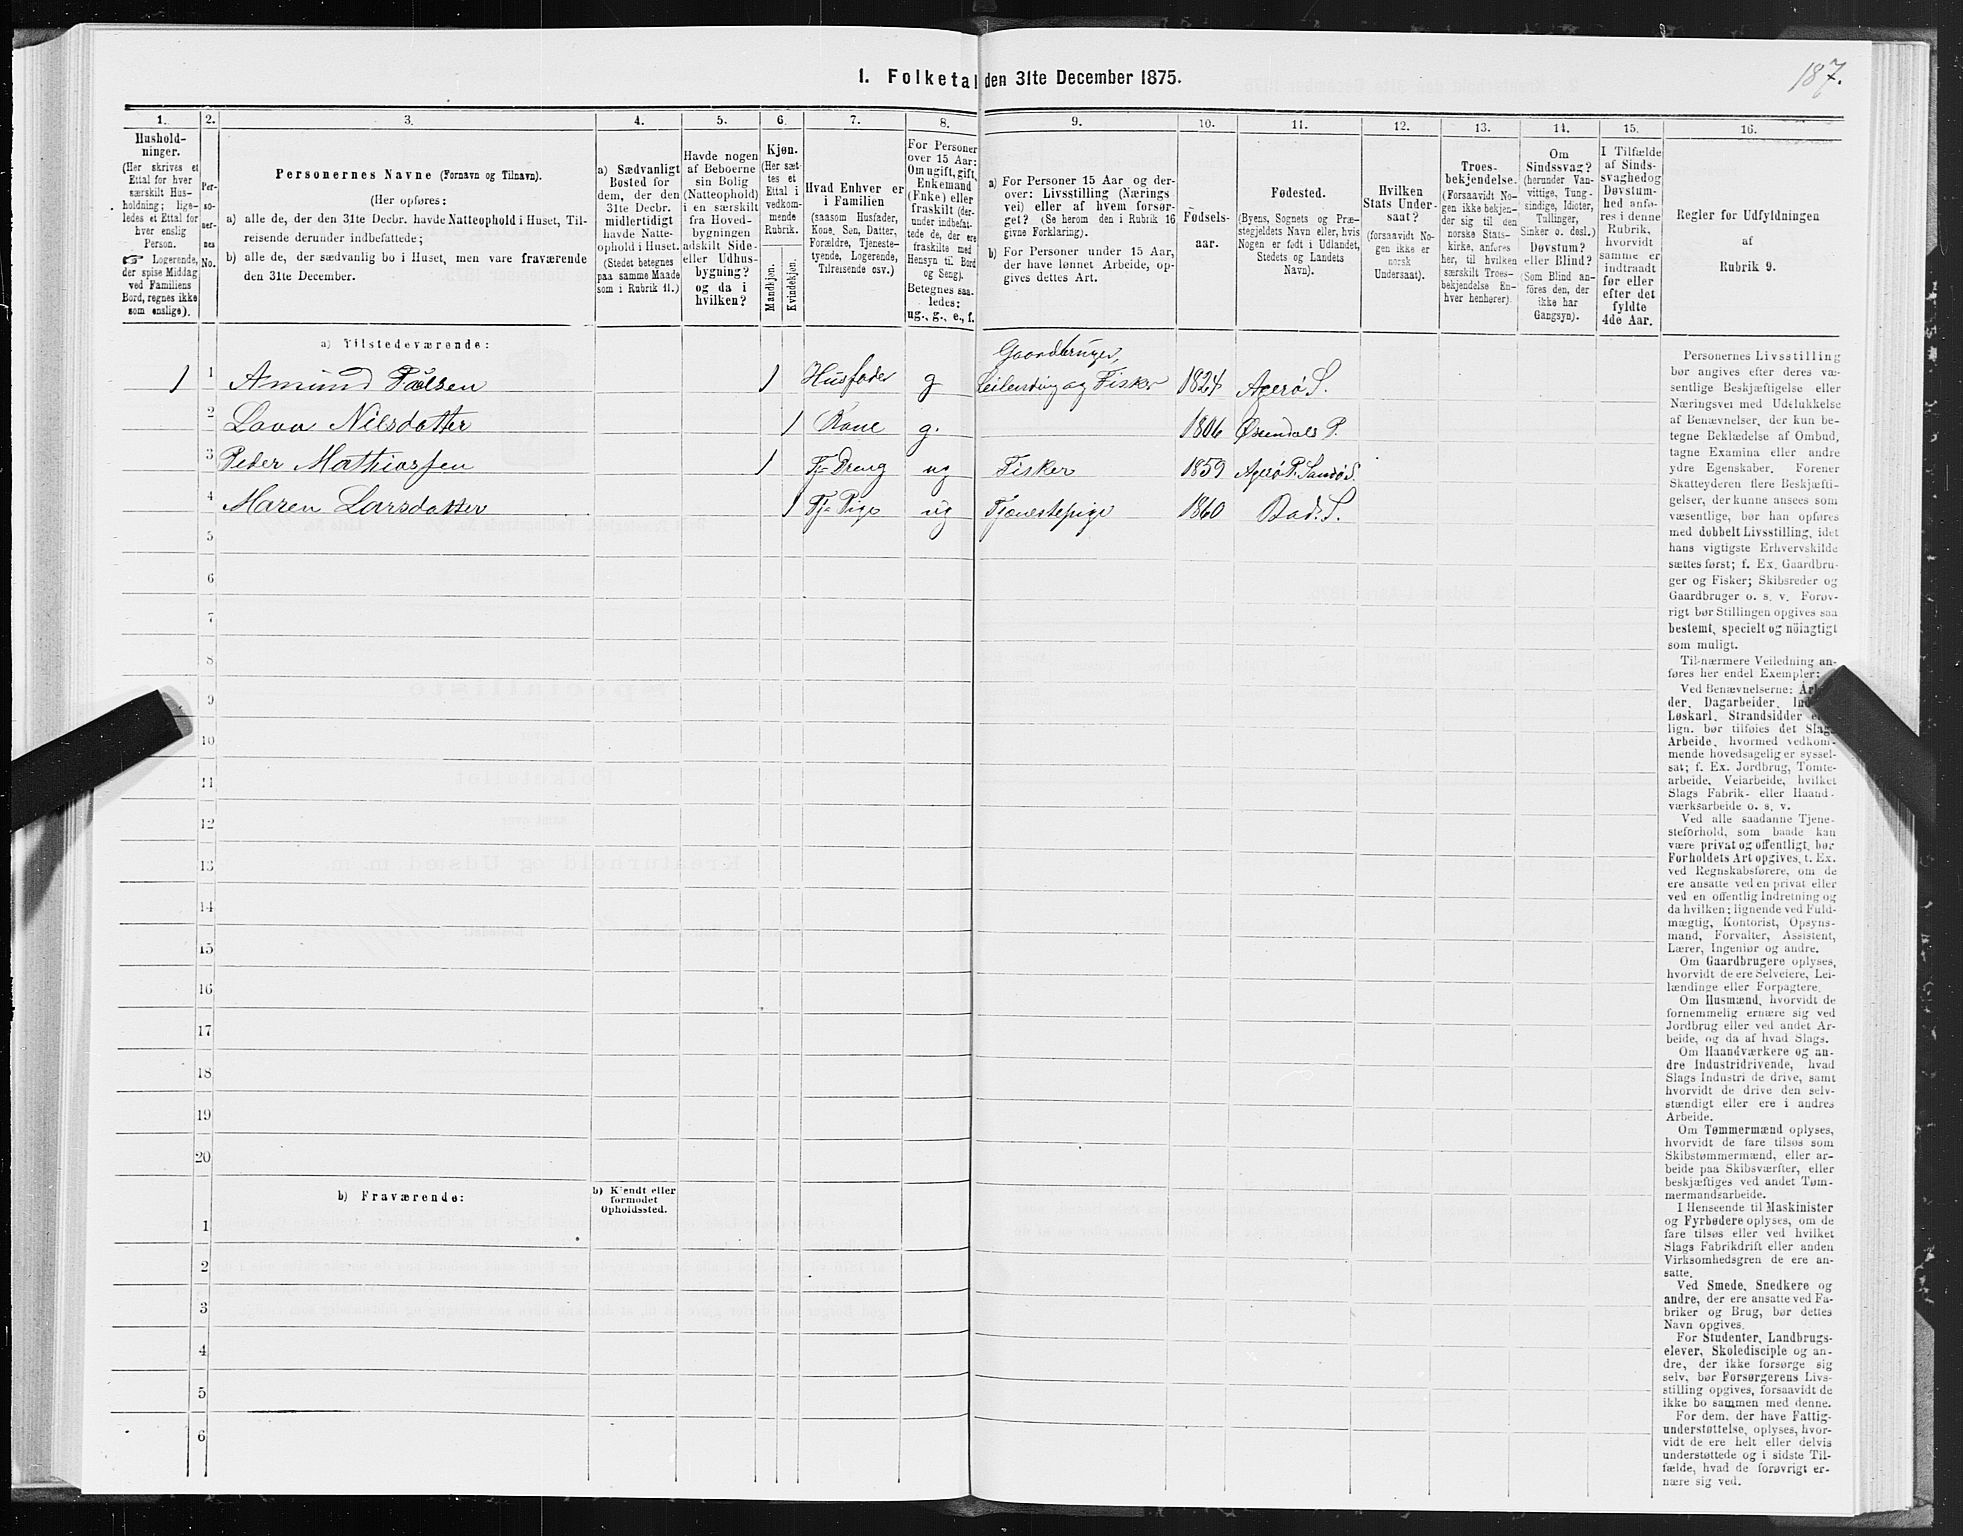 187.
1. Folketal den 31te December 1875.
1. 2. 3. 4. 5. 6. 7. 8. 9. 10. 11. 12. 13. 14. 15. 16.
Hushold-
ninger.
(Her skrives et
Ettal for hver
særskilt Hus-
holdning; lige-
ledes et Ettal for
hver enslig
Person.
☞ Logerende,
der spise Middag
ved Familiens
Bord, regnes ikke
som enslige).
Per-
so-
ner-
nes
No.
Personernes Navne (Fornavn og Tilnavn).
(Her opføres:
a) alle de, der den 31te Decbr. havde Natteophold i Huset, Til-
reisende derunder indbefattede;
b) alle de, der sædvanlig bo i Huset, men vare fraværende
den 31te December.
a) Sædvanligt
Bosted for
dem, der den
31te Decbr.
midlertidigt
havde Natte-
ophold i Huset.
(Stedet betegnes
paa samme Maade
som i Rubrik 11.)
Havde nogen
af Beboerne
sin Bolig
(Natteophold)
i en særskilt
fra Hoved-
bygningen
adskilt Side-
eller Udhus-
bygning?
og da i
hvilken?
Kjøn.
(Her sæt-
tes et
Ettal i
vedkom-
mende
Rubrik.
Mandkjøn.
Kvindekjøn.
Hvad Enhver er
i Familien
(saasom Husfader,
Kone, Søn, Datter,
Forældre, Tjeneste-
tyende, Logerende,
Tilreisende osv.)
For Personer
over 15 Aar:
Om ugift, gift,
Enkemand
(Enke) eller
fraskilt (der-
under indbefat-
tede de, der ere
fraskilte med
Hensyn til Bord
og Seng).
Betegnes saa-
ledes:
ug., g., e., f.
a) For Personer 15 Aar og der-
over: Livsstilling (Nærings-
vei) eller af hvem forsør-
get? (Se herom den i Rubrik 16
givne Forklaring).
b) For Personer under 15 Aar,
der have lønnet Arbeide, op-
gives dettes Art.
Fødsels-
aar.
Fødested.
(Byens, Sognets og Præ-
stegjeldets Navn eller, hvis
Nogen er født i Udlandet,
Stedets og Landets
Navn).
Hvilken
Stats Under-
saat?
(forsaavidt No-
gen ikke er
norsk
Undersaat).
Troes-
bekjendelse.
(Forsaavidt No-
gen ikke bekjen-
der sig til den
norske Stats-
kirke, anføres
her, til hvilken
særskilt Troes-
bekjendelse En-
hver henhører).
Om
Sindssvag?
(herunder Van-
vittige, Tung-
sindige, Idioter,
Tullinger,
Sinker o. desl.)
Døvstum?
eller Blind?
(Som Blind an-
føres den, der
ikke har
Gangsyn).
I Tilfælde
af Sinds-
svaghed og
Døvstum-
hed anfø-
res i denne
Rubrik,
hvorvidt
samme er
indtraadt
før eller
efter det
fyldte
4de Aar.
Regler for Udfyldningen
af
Rubrik 9.
a) Tilstedeværende:
Gaardbruger,
1 1 Amund Pålsen 1 Husfader g Leilending og Fisker 1824 Agerø S.
2 Lava Nilsdatter 1 Kone g. 1806 Øxendals P.
3 Peder Mathiassen 1 Tj= Dreng ug Fisker 1859 Agerø P. Sandø S.
4 Maren Larsdatter 1 Tj= Pige ug Tjenestepige 1860 Bod. S.
5
6
7
8
9
10
11
12
13
14
15
16
17
18
19
20
b) Fraværende: b) Kjendt eller
formodet
Opholdssted.
1
2
3
4
5
6
Personernes Livsstilling
bør angives efter deres væ-
sentlige Beskjæftigelse eller
Næringsvei med Udelukkelse
af Benævnelser, der kun be-
tegne Beklædelse af Ombud,
tagne Examina eller andre
ydre Egenskaber. Forener
Skatteyderen flere Beskjæfti-
gelser, der kunne ansees som
væsentlige, bør han opføres
med dobbelt Livsstilling, idet
hans vigtigste Erhvervskilde
sættes først; f. Ex. Gaardbru-
ger og Fisker; Skibsreder og
Gaardbruger o. s. v. Forøv-
rigt bør Stillingen opgives saa
bestemt, specielt og nöiagtigt
som muligt.
Til nærmere Veiledning an-
føres her endel Exempler:
Ved Benævnelserne:
der, Dagarbeider,
Løskarl, Strandsidder
lign. bør tilføies det Slags
Arbeide, hvormed vedkom-
mende hovedsagelig er syssel-
sat; f. Ex. Jordbrug, Tomte-
arbeide, Veiarbeide, hvilket
Slags Fabrik- eller Haand-
værksarbeide o. s. v.
Ved alle saadanne Tjene-
steforhold, som baade kan
være privat og offentligt, bør
Forholdets Art opgives, t. Ex.
ved Regnskabsførere, om de
ere ansatte ved en privat eller
ved en offentlig Indretning og
da hvilken; lignende ved Fuld-
mægtig, Kontorist, Opsyns-
mand, Forvalter, Assistent,
Lærer, Ingeniør og andre.
Om Gaardbrugere oplyses,
hvorvidt de ere Selveiere, Lei-
lændinge eller Forpagtere.
Om Husmænd, hvorvidt de
fornemmelig ernære sig ved
Jordbrug eller ved andet Ar-
beide, og da af hvad Slags.
Om Haandværkere og an-
dre Industridrivende, hvad
Slags Industri de drive, samt
hvorvidt de drive den selv-
stændigt eller ere i andres
Arbeide.
Om Tømmermænd oplyses,
hvorvidt de fare tilsøs som
Skibstømmermænd, eller ar-
beide paa Skibsværfter, eller
beskjæftiges ved andet Tøm-
mermandsarbeide.
I Henseende til Maskinister
og Fyrbødere oplyses, om de
fare tilsøs eller ved hvilket
Slags Fabrikdrift eller anden
Virksomhedsgren de ere an-
satte.
Ved Smede, Snedkere og
andre, der ere ansatte ved Fa-
briker og Brug, bør dettes
Navn opgives.
For Studenter, Landbrugs-
elever, Skoledisciple og an-
dre, der ikke forsørge sig
selv, bør Forsørgerens Livs-
stilling opgives, forsaavidt de
ikke bo sammen med denne.
For dem, der have Fattig-
understøttelse, oplyses, hvor-
vidt de ere helt eller delvis
understøttede og i sidste Til-
fælde, hvad de forøvrigt er-
nære sig ved.